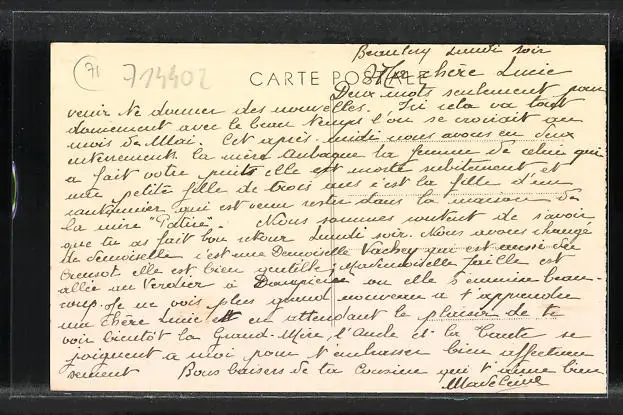 71
714402
CARTE POSTALE
Beaubery Lundi soir
Ma chère Lucie
Deux mots seulement pour
venir te donner des nouvelles. Ici cela va tout
doucement avec le beau temps l'on se croirait au
mois de Mai. Cet après-midi nous avons eu deux
enterrements la mère Aubague la femme de celui qui
a fait votre puits elle est morte subitement et
une petite fille de trois ans c'est la fille d'un
cantonnier qui est venu rester dans la maison de
la mère "". Nous sommes content de savoir
que tu as fait bon retour Lundi soir. Nous avons changé
de demoiselle c'est une Demoiselle Vachey qui est aussi du
Creusot elle est bien gentille; Mademoiselle Faille est
allée au Verdier à ou elle s'ennuie beau-
coup. Je ne vois plus grand nouveau a t'apprendre
ma chère Lucie et en attendant le plaisir de te
voir bientôt la Grand-Mère, l'Oncle et la Tante se
joignent a moi pour t'embrasser bien affectueu
sement Bons baisers de ta Cousine qui t'aime bien
Madeleine